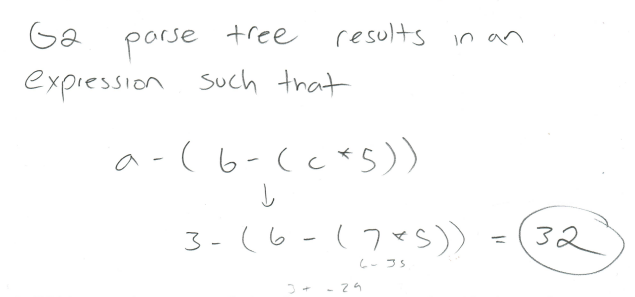 G2 parse tree results in an
expression such that
a - ( b - ( c * 5 ) )
↓
3 - ( 6 - ( 7 * 5 ) ) = 32
6 - 35
3 + - 29